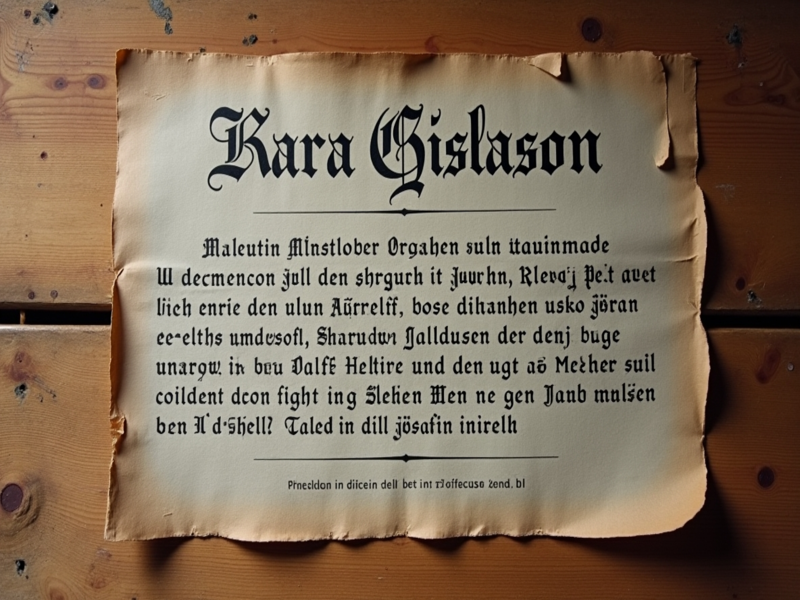 Kara Gislason
Maleutin Minstlober Orgahen suln itauinmade
W decmencon jull den shrgurh it Juurhn, Pe.t auet
lich enrie den ulun bose dihanhen usko jöran
umdesofl, Sharudun Jalldusen der denj buge
in bou Dalff Heltire und den ugt Mecher suil
coildent dcon fight ing Slehen Men ne gen Janb mulsen
ben Taled in dill jösafin inirelh
in diicein dell bet int Zend. bl